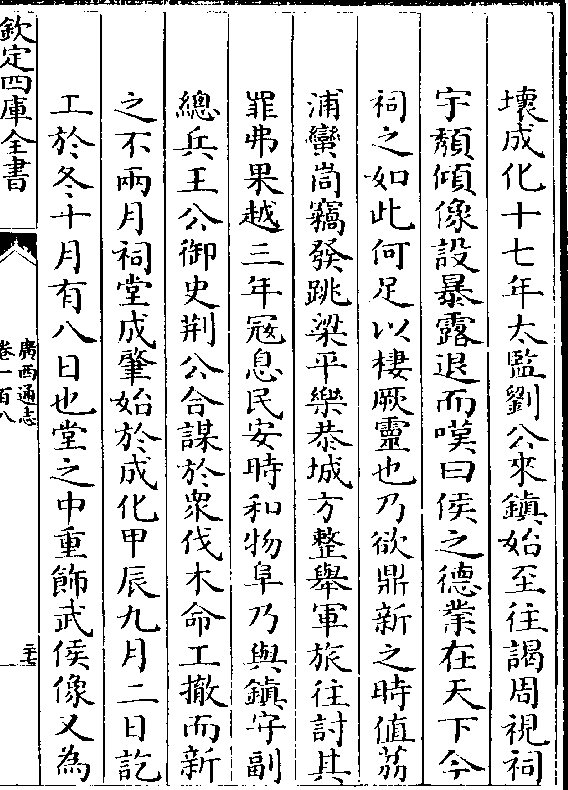 壞成化十七年太監劉公來鎮始至往謁周視祠
宇頽傾像設暴露退而嘆曰侯之德業在天下今
祠之如此何足以棲厥靈也乃欲鼎新之時值荔
浦蠻峝竊發跳梁平樂恭城方整舉軍旅往討其
罪弗果越三年寇息民安時和物阜乃與鎮守副
總兵王公御史荆公合謀於衆伐木命工撤而新
之不兩月祠堂成肇始於成化甲辰九月二日訖
工於冬十月有八日也堂之中重飾武侯像又為
欽定四庫全書
廣西通志
卷一百八